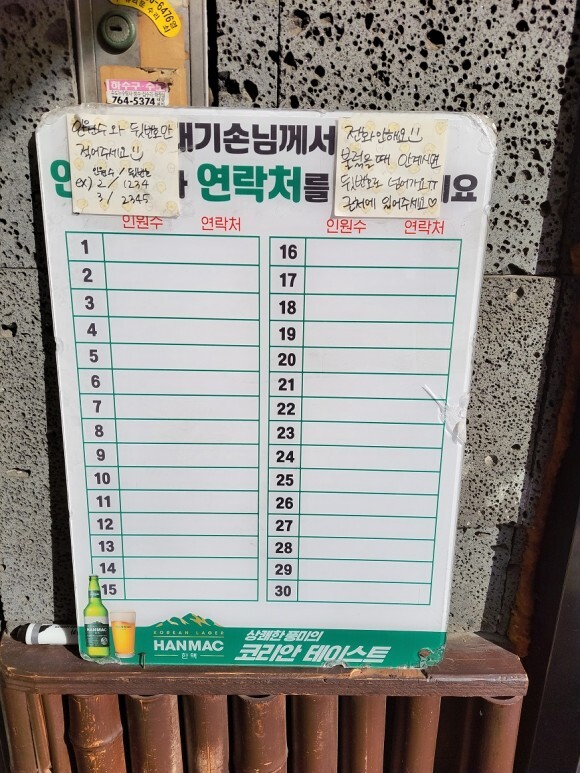 6476
하수구
764-5374
인원수와 뒷번호만
적어주세요
인원수 / 뒷번호
ex) 2 / 1234
3 / 2345
대기손님께서
연락처를
전화안해요
불렀을때 안계시면
뒷번호로 넘어가요ㅠ
근처에 있어주세요♡
인원수 연락처
인원수 연락처
1
2
3
4
5
6
7
8
9
10
11
12
13
14
15
16
17
18
19
20
21
22
23
24
25
26
27
28
29
30
HANMAC
KOREAN LAGER
HANMAC
한맥
상쾌한 풍미의
코리안 테이스트